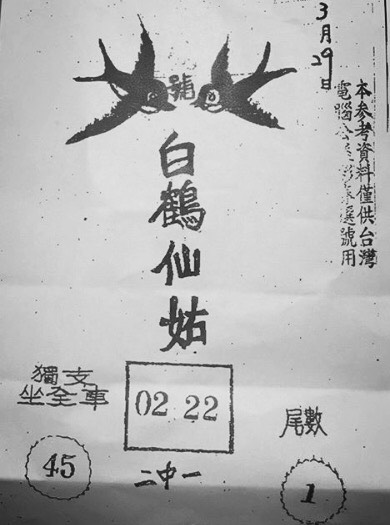 3月29日
本參考資料僅供台灣
電腦公益彩券選號用
號
白鶴仙姑
獨支
坐全車
45
02 22
二中一
尾數
1